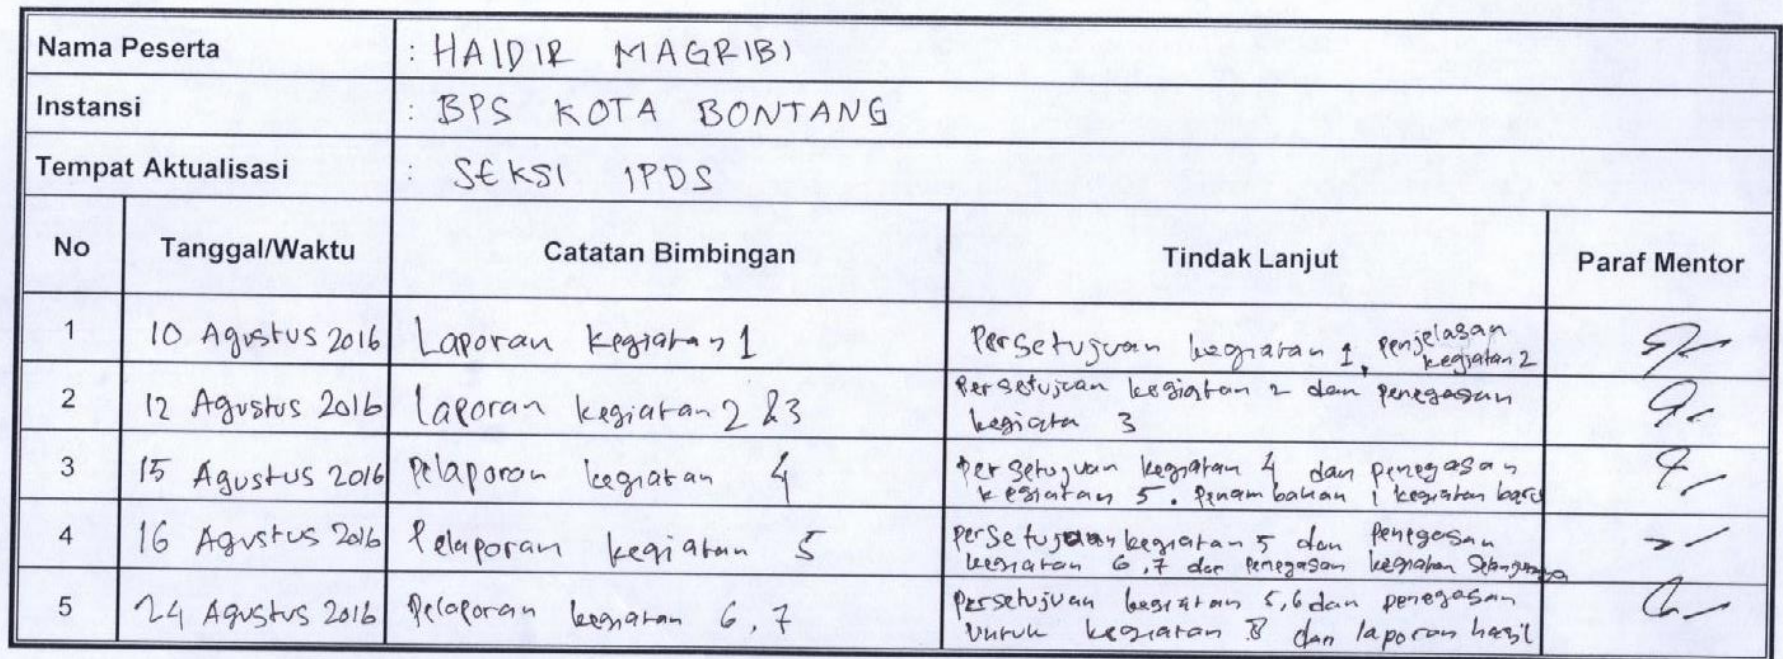 Nama Peserta : HAIDIR MAGRIBI
Instansi : BPS KOTA BONTANG
Tempat Aktualisasi : SEKSI IPDS
No Tanggal/Waktu Catatan Bimbingan Tindak Lanjut Paraf Mentor
1 10 Agustus 2016 Laporan kegiatan 1 Persetujuan kegiatan 1, Penjelasan
kegiatan 2
2 12 Agustus 2016 Laporan kegiatan 2 & 3 Persetujuan kegiatan 2 dan penegasan
kegiatan 3
3 15 Agustus 2016 Pelaporan kegiatan 4 Persetujuan kegiatan 4 dan penegasan
kegiatan 5. Penambahan 1 kegiatan baru
4 16 Agustus 2016 Pelaporan kegiatan 5 Persetujuan kegiatan 5 dan Penegasan
kegiatan 6,7 dan penegasan kegiatan
5 24 Agustus 2016 Pelaporan kegiatan 6,7 Persetujuan kegiatan 5,6 dan penegasan
Untuk kegiatan 8 dan laporan hasil